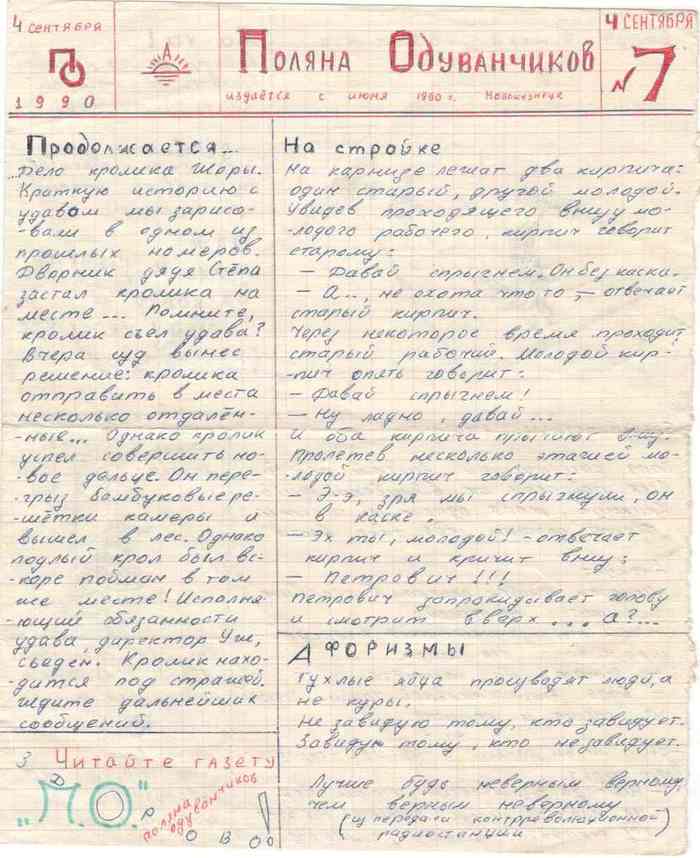 4 сентября
ПО
1990
Поляна Одуванчиков
издаётся с июня 1980 г. Новокузнецк
4 сентября
N 7
Продолжается...
Дело кролика Шоры.
Краткую историю с
удавом мы зарисо-
-вали в одном из
прошлых номеров.
Дворник дядя Стёпа
застал кролика на
месте... Помните,
кролик съел удава?
Вчера суд вынес
решение: кролика
отправить в места
несколько отдалён-
-ные... Однако кролик
успел совершить но-
-вое дельце. Он пере-
-грыз бамбуковые ре-
-шётки камеры и
вышел в лес. Однако
подлый крол был вс-
-коре пойман в том
же месте! Исполня-
-ющий обязанности
удава, директор Уж,
съеден. Кролик нахо-
-дится под стражей.
Ждите дальнейших
сообщений.
З Читайте газету
"П.О."
Д
Р
О
В
О!
поляна
одуванчиков
На стройке
На карнизе лежат два кирпича:
один старый, другой молодой.
Увидев проходящего внизу мо-
-лодого рабочего, кирпич говорит
старому:
— Давай спрыгнем. Он без каски.
— А.., не охота что то, — отвечает
старый кирпич.
Через некоторое время проходит
старый рабочий. Молодой кир-
-пич опять говорит:
— Давай спрыгнем!
— Ну ладно, давай...
И оба кирпича прыгают
Пролетев несколько этажей мо-
-лодой кирпич говорит:
— Э-э, зря мы спрыгнули, он
в каске.
— Эх ты, молодой! - отвечает
кирпич и кричит вниз:
— Петрович!!!
Петрович запрокидывает голову
и смотрит вверх... А?...
Афоризмы
Тухлые яйца производят люди, а
не куры.
Не завидую тому, кто завидует.
Завидую тому, кто не завидует.
Лучше будь неверным верному,
чем верным неверному
(из передачи контрреволюционной
радиостанции)